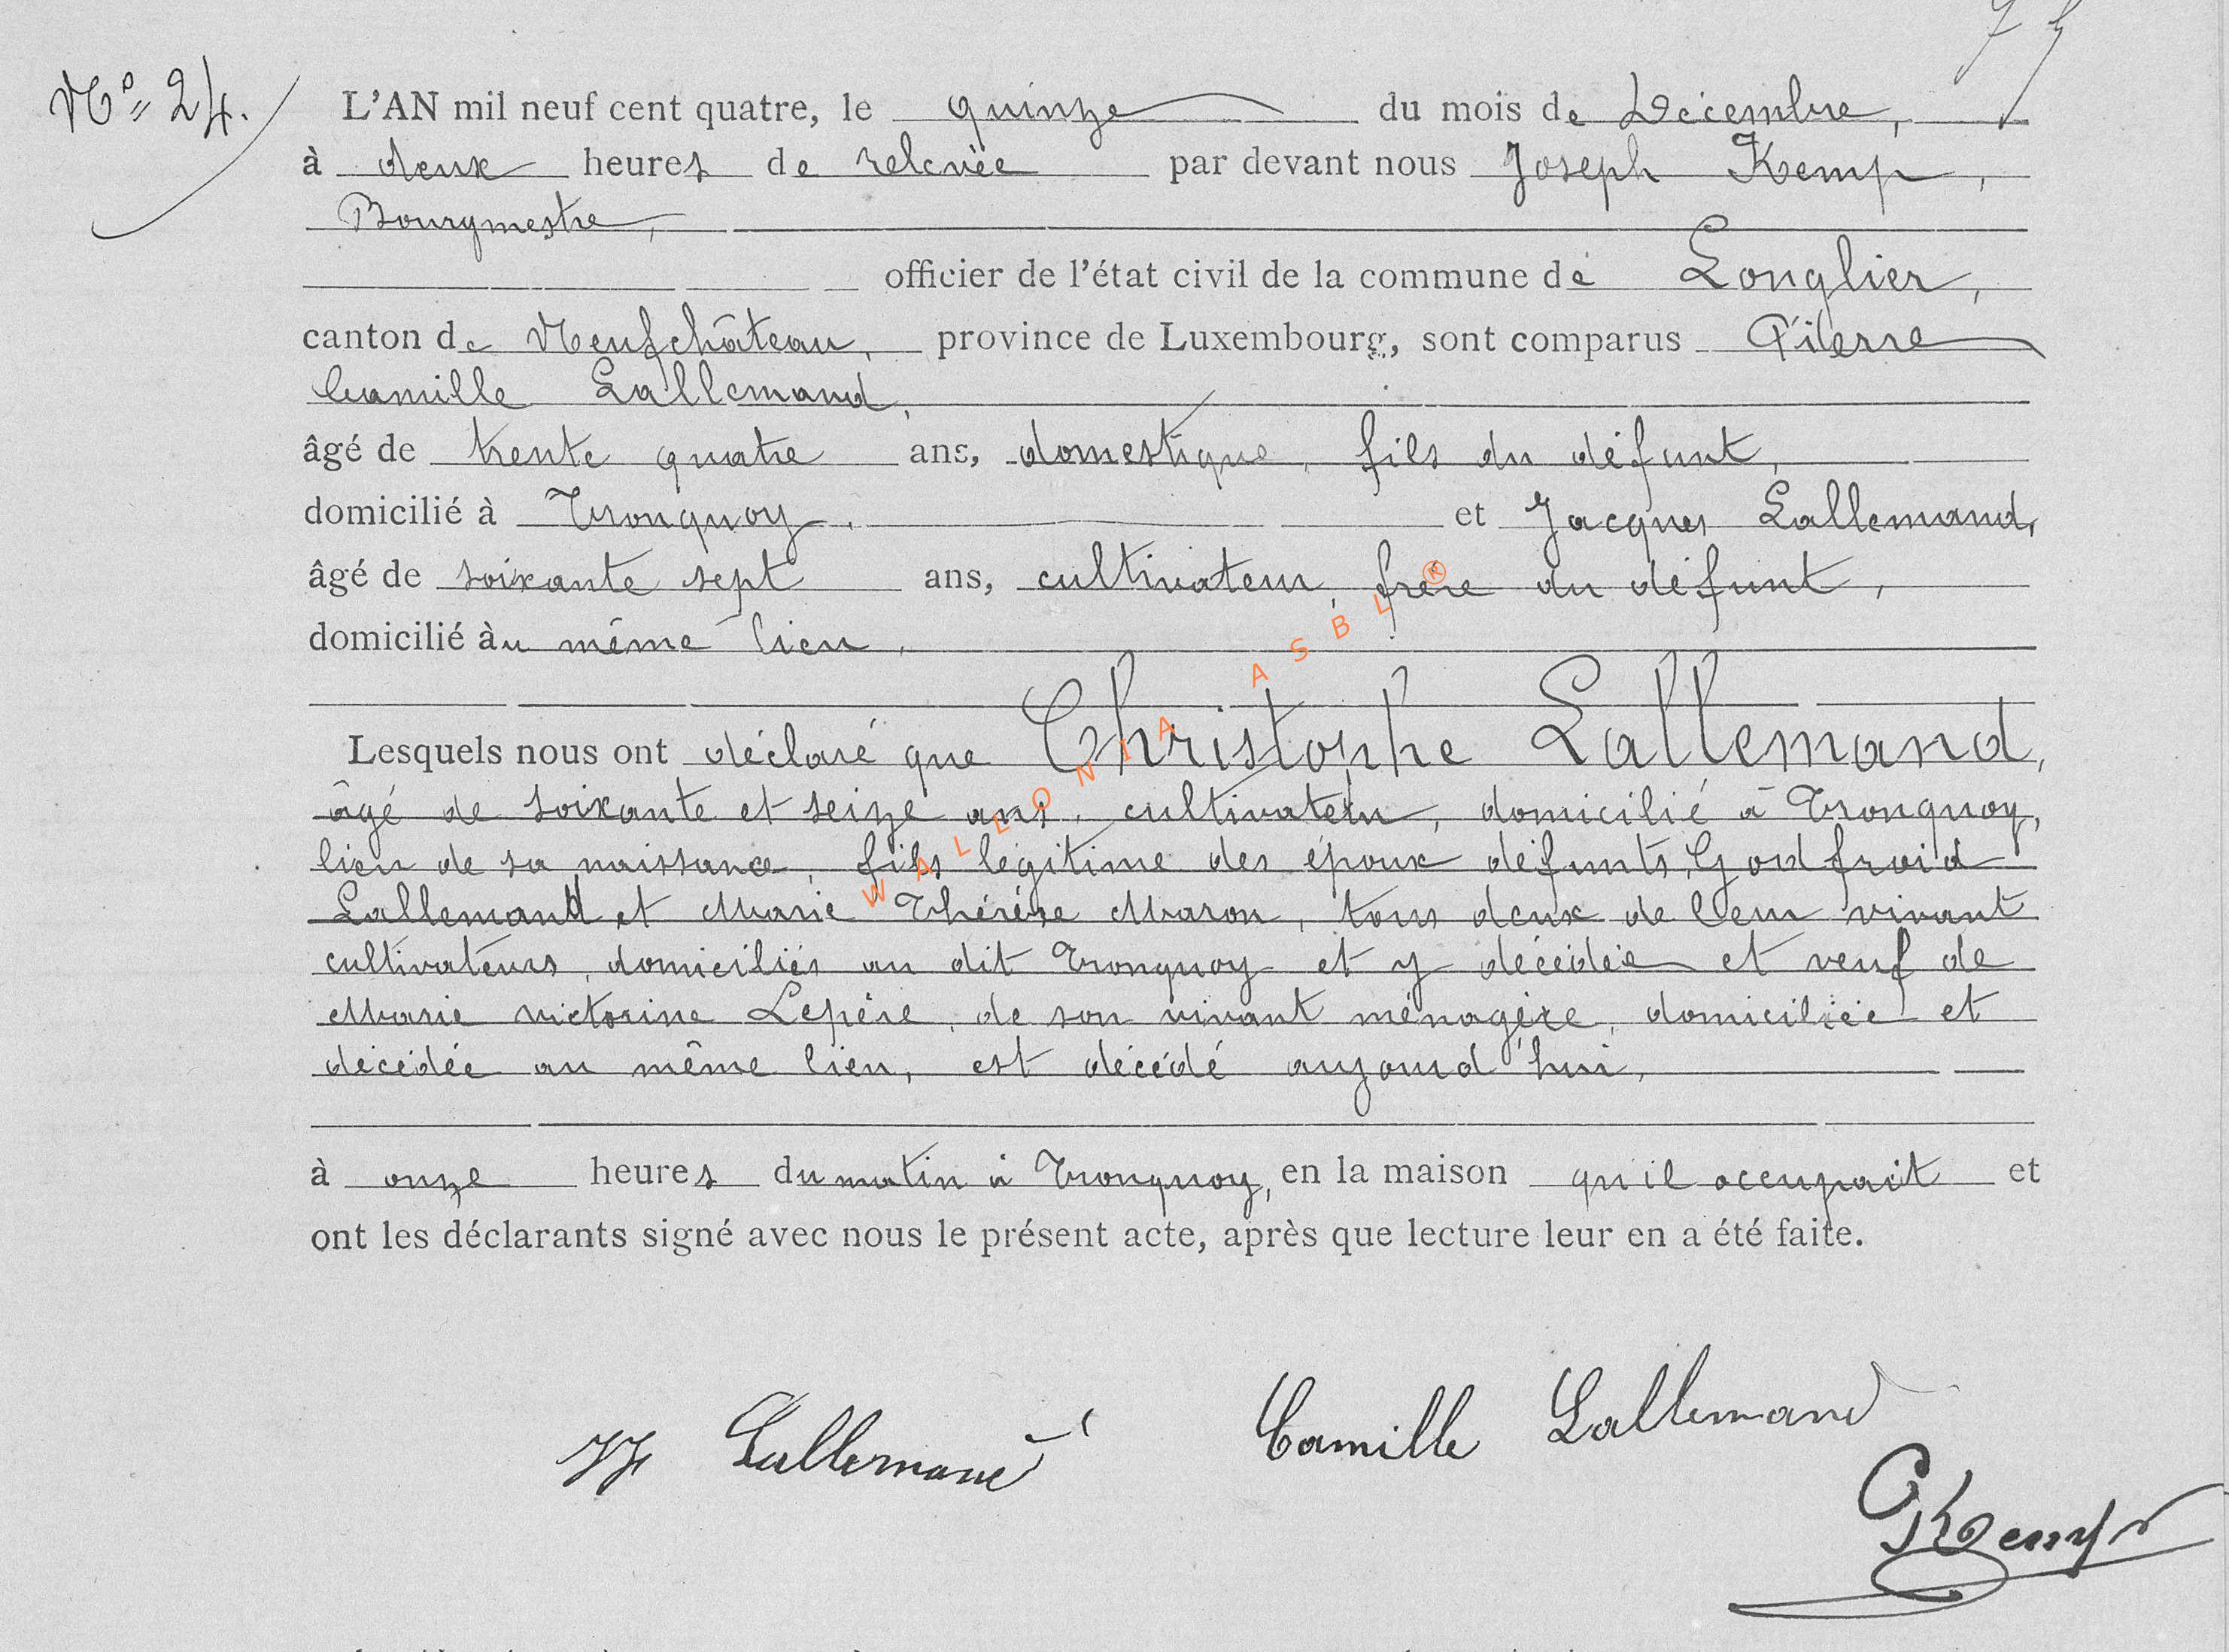 N° 24.
L'AN mil neuf cent quatre, le quinze du mois de Décembre,
à deux heures de relevée par devant nous Joseph Kemp,
Bourgmestre,
officier de l'état civil de la commune de Longlier,
canton de Neufchâteau, province de Luxembourg, sont comparus Pierre
Camille Lallemand,
âgé de trente quatre ans, domestique, fils du défunt,
domicilié à Tronquoy, et Jacques Lallemand,
âgé de soixante sept ans, cultivateur, frère du défunt,
domicilié àu même lieu,
Lesquels nous ont déclaré que Christophe Lallemand,
âgé de soixante et seize ans, cultivateur, domicilié à Tronquoy,
lieu de sa naissance, fils légitime des époux défunts, Godfroid
Lallemand et Marie Thérèse Maron, tous deux de leur vivant
cultivateurs, domiciliés au dit Tronquoy et y décédés et veuf de
Marie victorine Lepère, de son vivant ménagère, domiciliée et
décédée au même lieu, est décédé aujourd'hui,
à onze heures du matin à Tronquoy, en la maison qu'il occupait et
ont les déclarants signé avec nous le présent acte, après que lecture leur en a été faite.
Lallemand Camille Lallemand
Kemp
WALLONIA ASBL ®